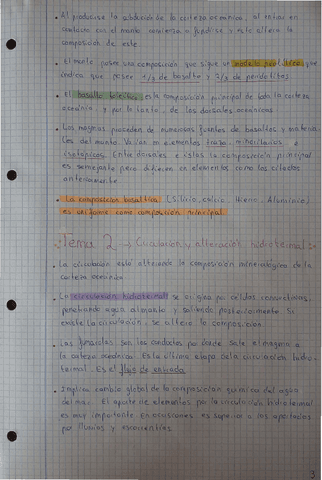 Al producirse la subducción de la corteza oceánica, al entrar en
contacto con el manto comienza a fundirse y esto altera la
composición de este.
El manto posee una composición que sigue un modelo pirolítico que
indica que posee 1/3 de basalto y 3/3 de peridotitas.
El basalto toleítico es la composición principal de toda la corteza
oceánica, y por lo tanto, de las dorsales oceánicas.
Los magmas proceden de numerosas fuentes de basaltos y materia
les del manto. Varían en elementos traza, minoritarios e
isotópicos. Entre dorsales e islas la composición principal
es semejante pero difieren en elementos como los citados
anteriormente.
La composición basáltica (Silicio, calcio, Hierro, Aluminio)
es uniforme como composición principal.
Tema 2 Circulación y alteración hidrotermal
La circulación está alterando la composición mineralógica de la
corteza oceánica
La circulación hidrotermal se origina por células convectivas,
penetrando agua al manto y saliendo posteriormente. Si
existe la circulación, se altera la composición.
Las fumarolas son los conductos por donde sale el magma a
la corteza oceánica. Es la última etapa de la circulación hidro-
termal. Es el flujo de
Implica cambio global de la composición química del agua
del mar. El aporte de elementos por la circulación hidrotermal
es muy importante, en ocasiones es superior a los aportados
por fluvios y escorrentías.
3